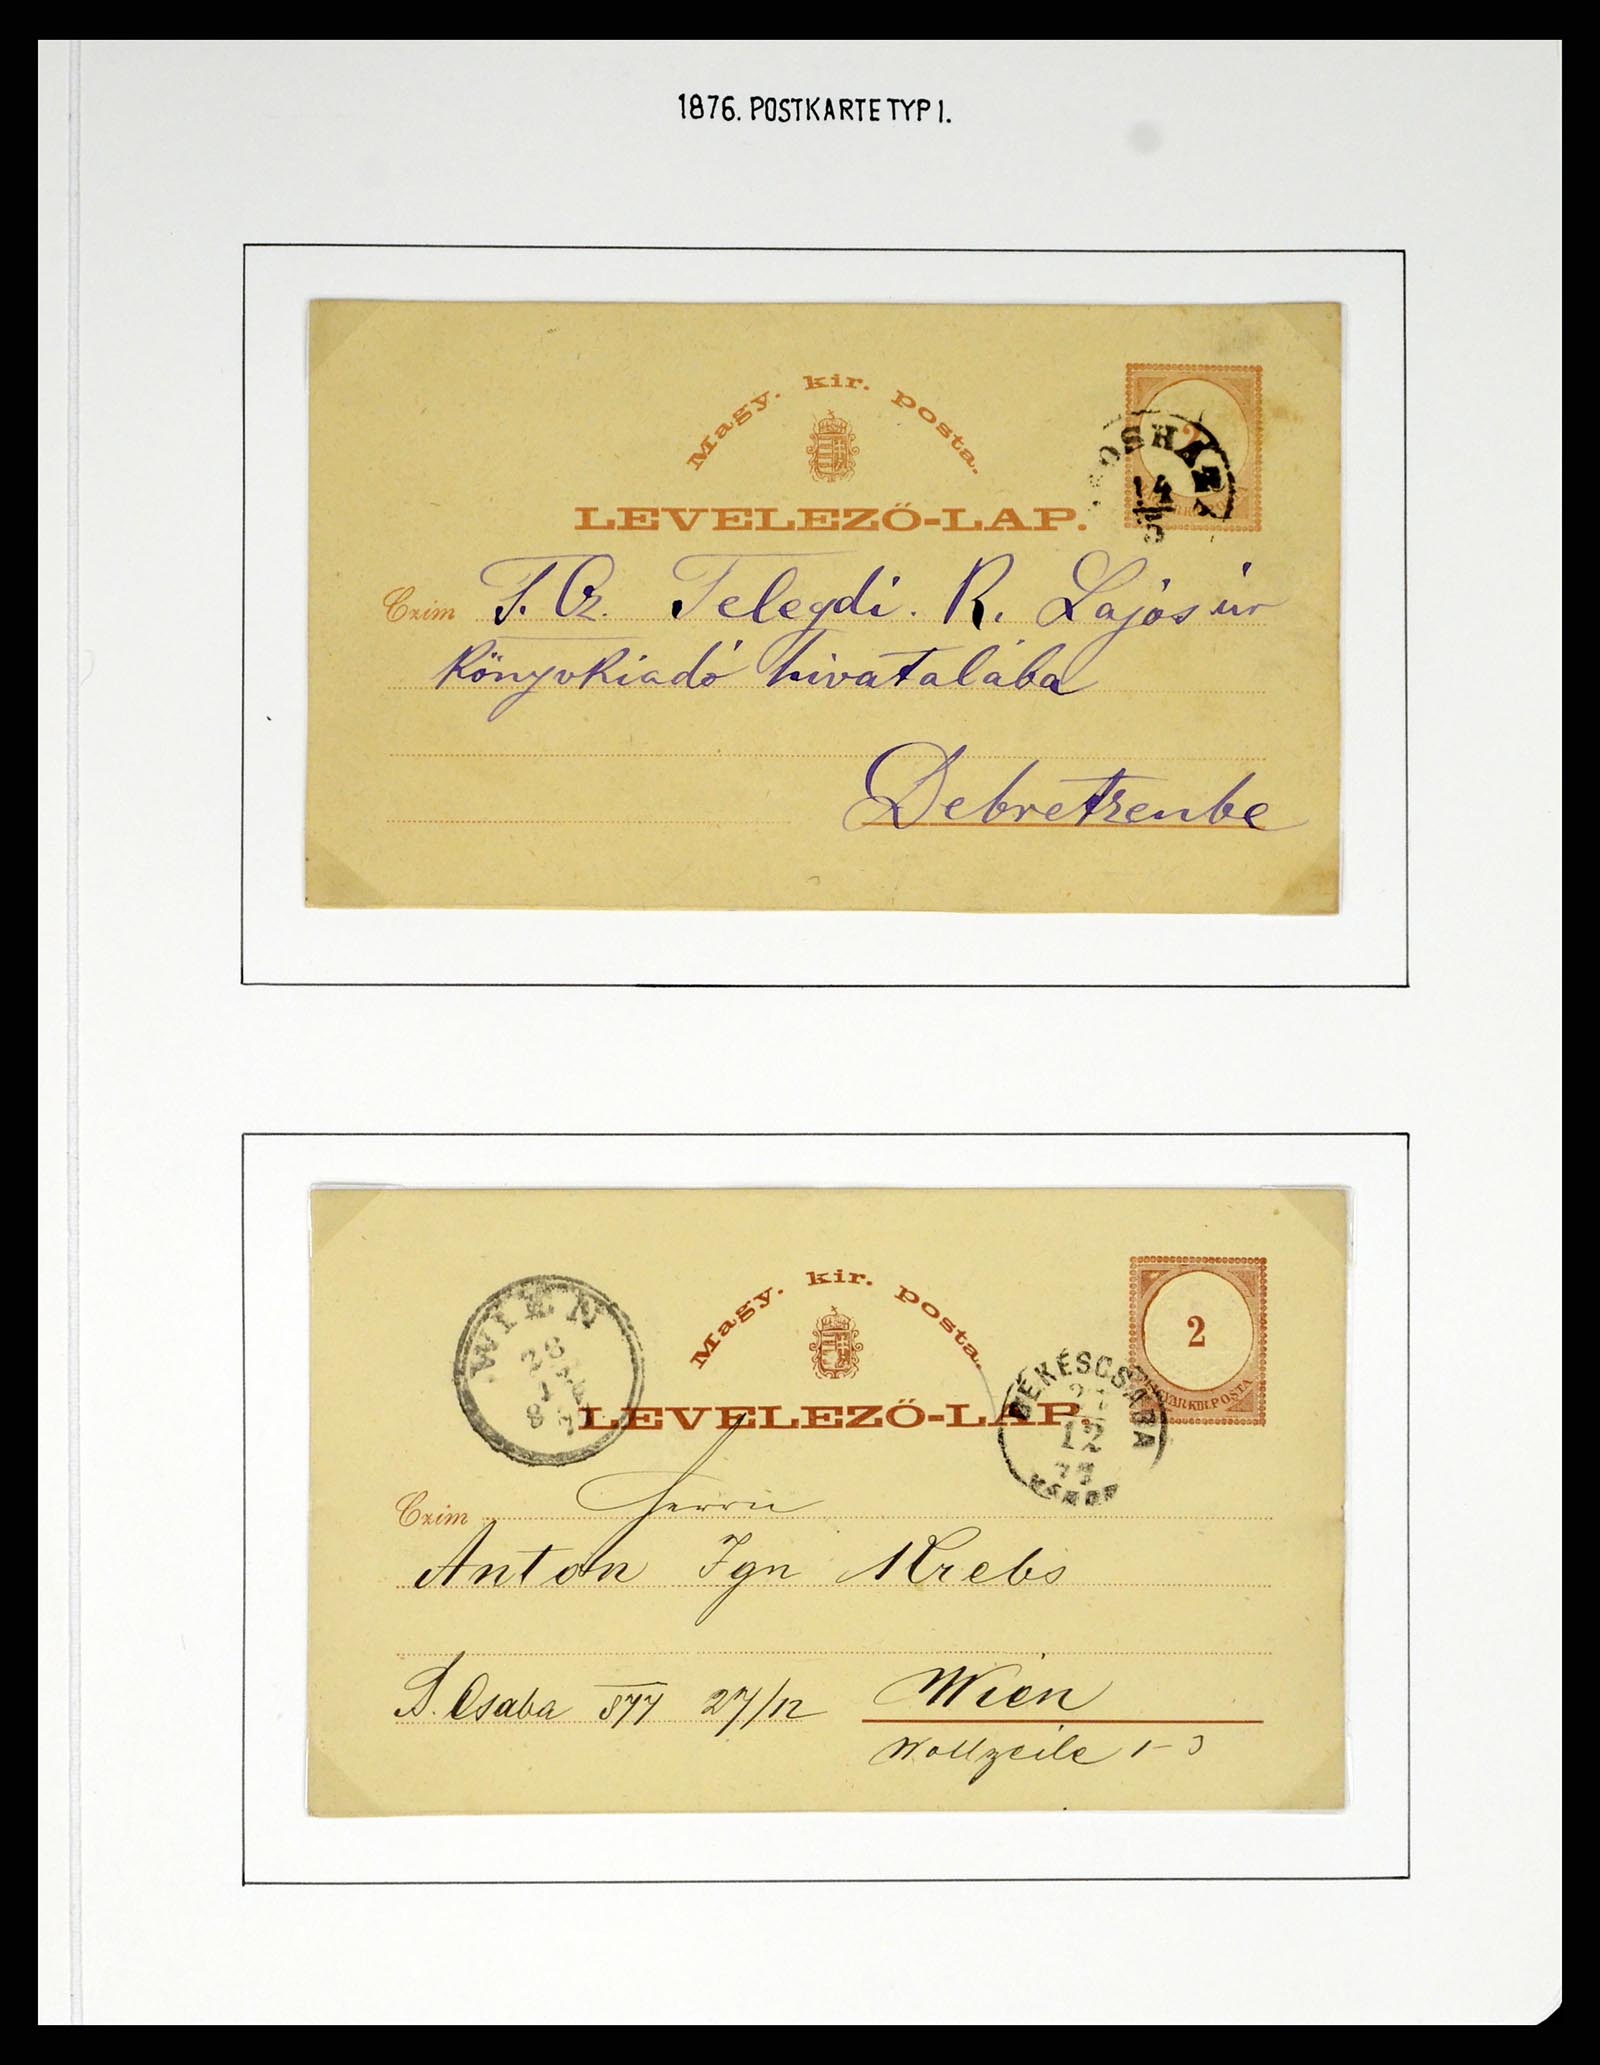 1876. POSTKARTE TYP I.
Magy. kir. posta.
LEVELEZŐ-LAP.
2
OSHÁZ
14
Czim T. Cz. Telegdi. R. Lajos úr
könyvkiadó hivatalába
Debretzenbe
Magy. kir. posta.
LEVELEZŐ-LAP.
2
MAGYAR KIR. POSTA
WIEN
28
BÉKÉSCSABA
12
77
Czim Herrn
Anton Ign Krebs
B. Csaba 877 27/12 Wien
Wollzeile 1-3